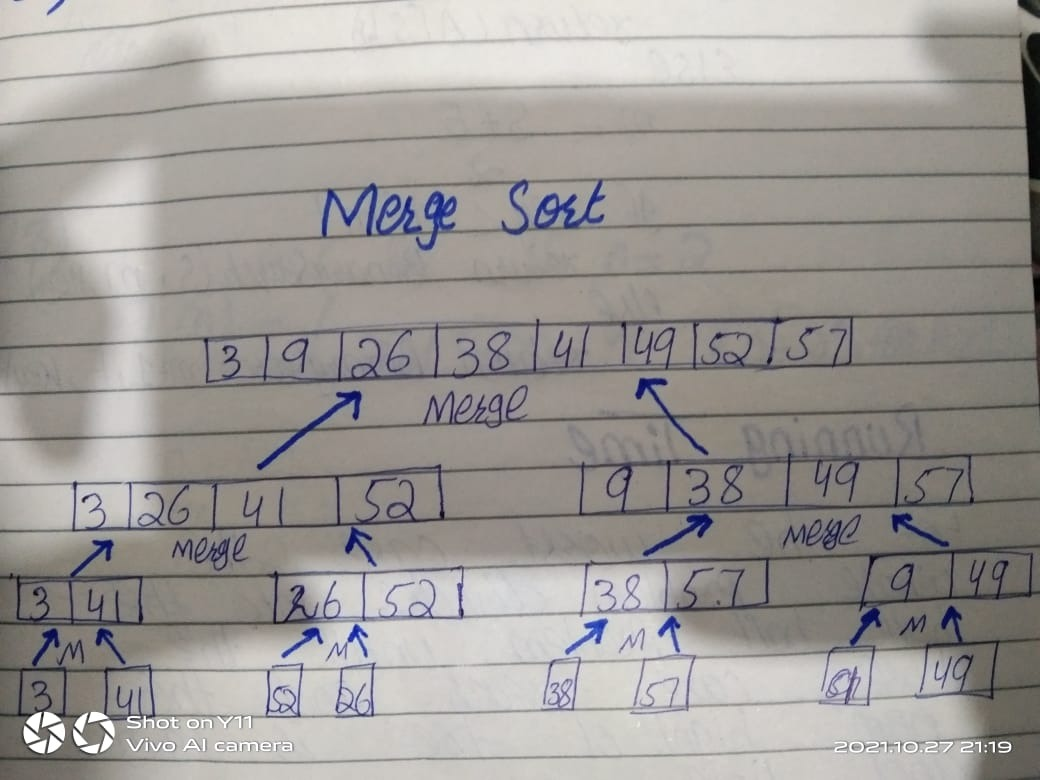 Merge Sort
3 9 26 38 41 49 52 57
Merge
3 26 41 52
9 38 49 57
merge
merge
3 41
26 52
38 57
9 49
M
M
M
M
3
41
52
26
38
57
49
Shot on Y11
Vivo AI camera
2021.10.27 21:19